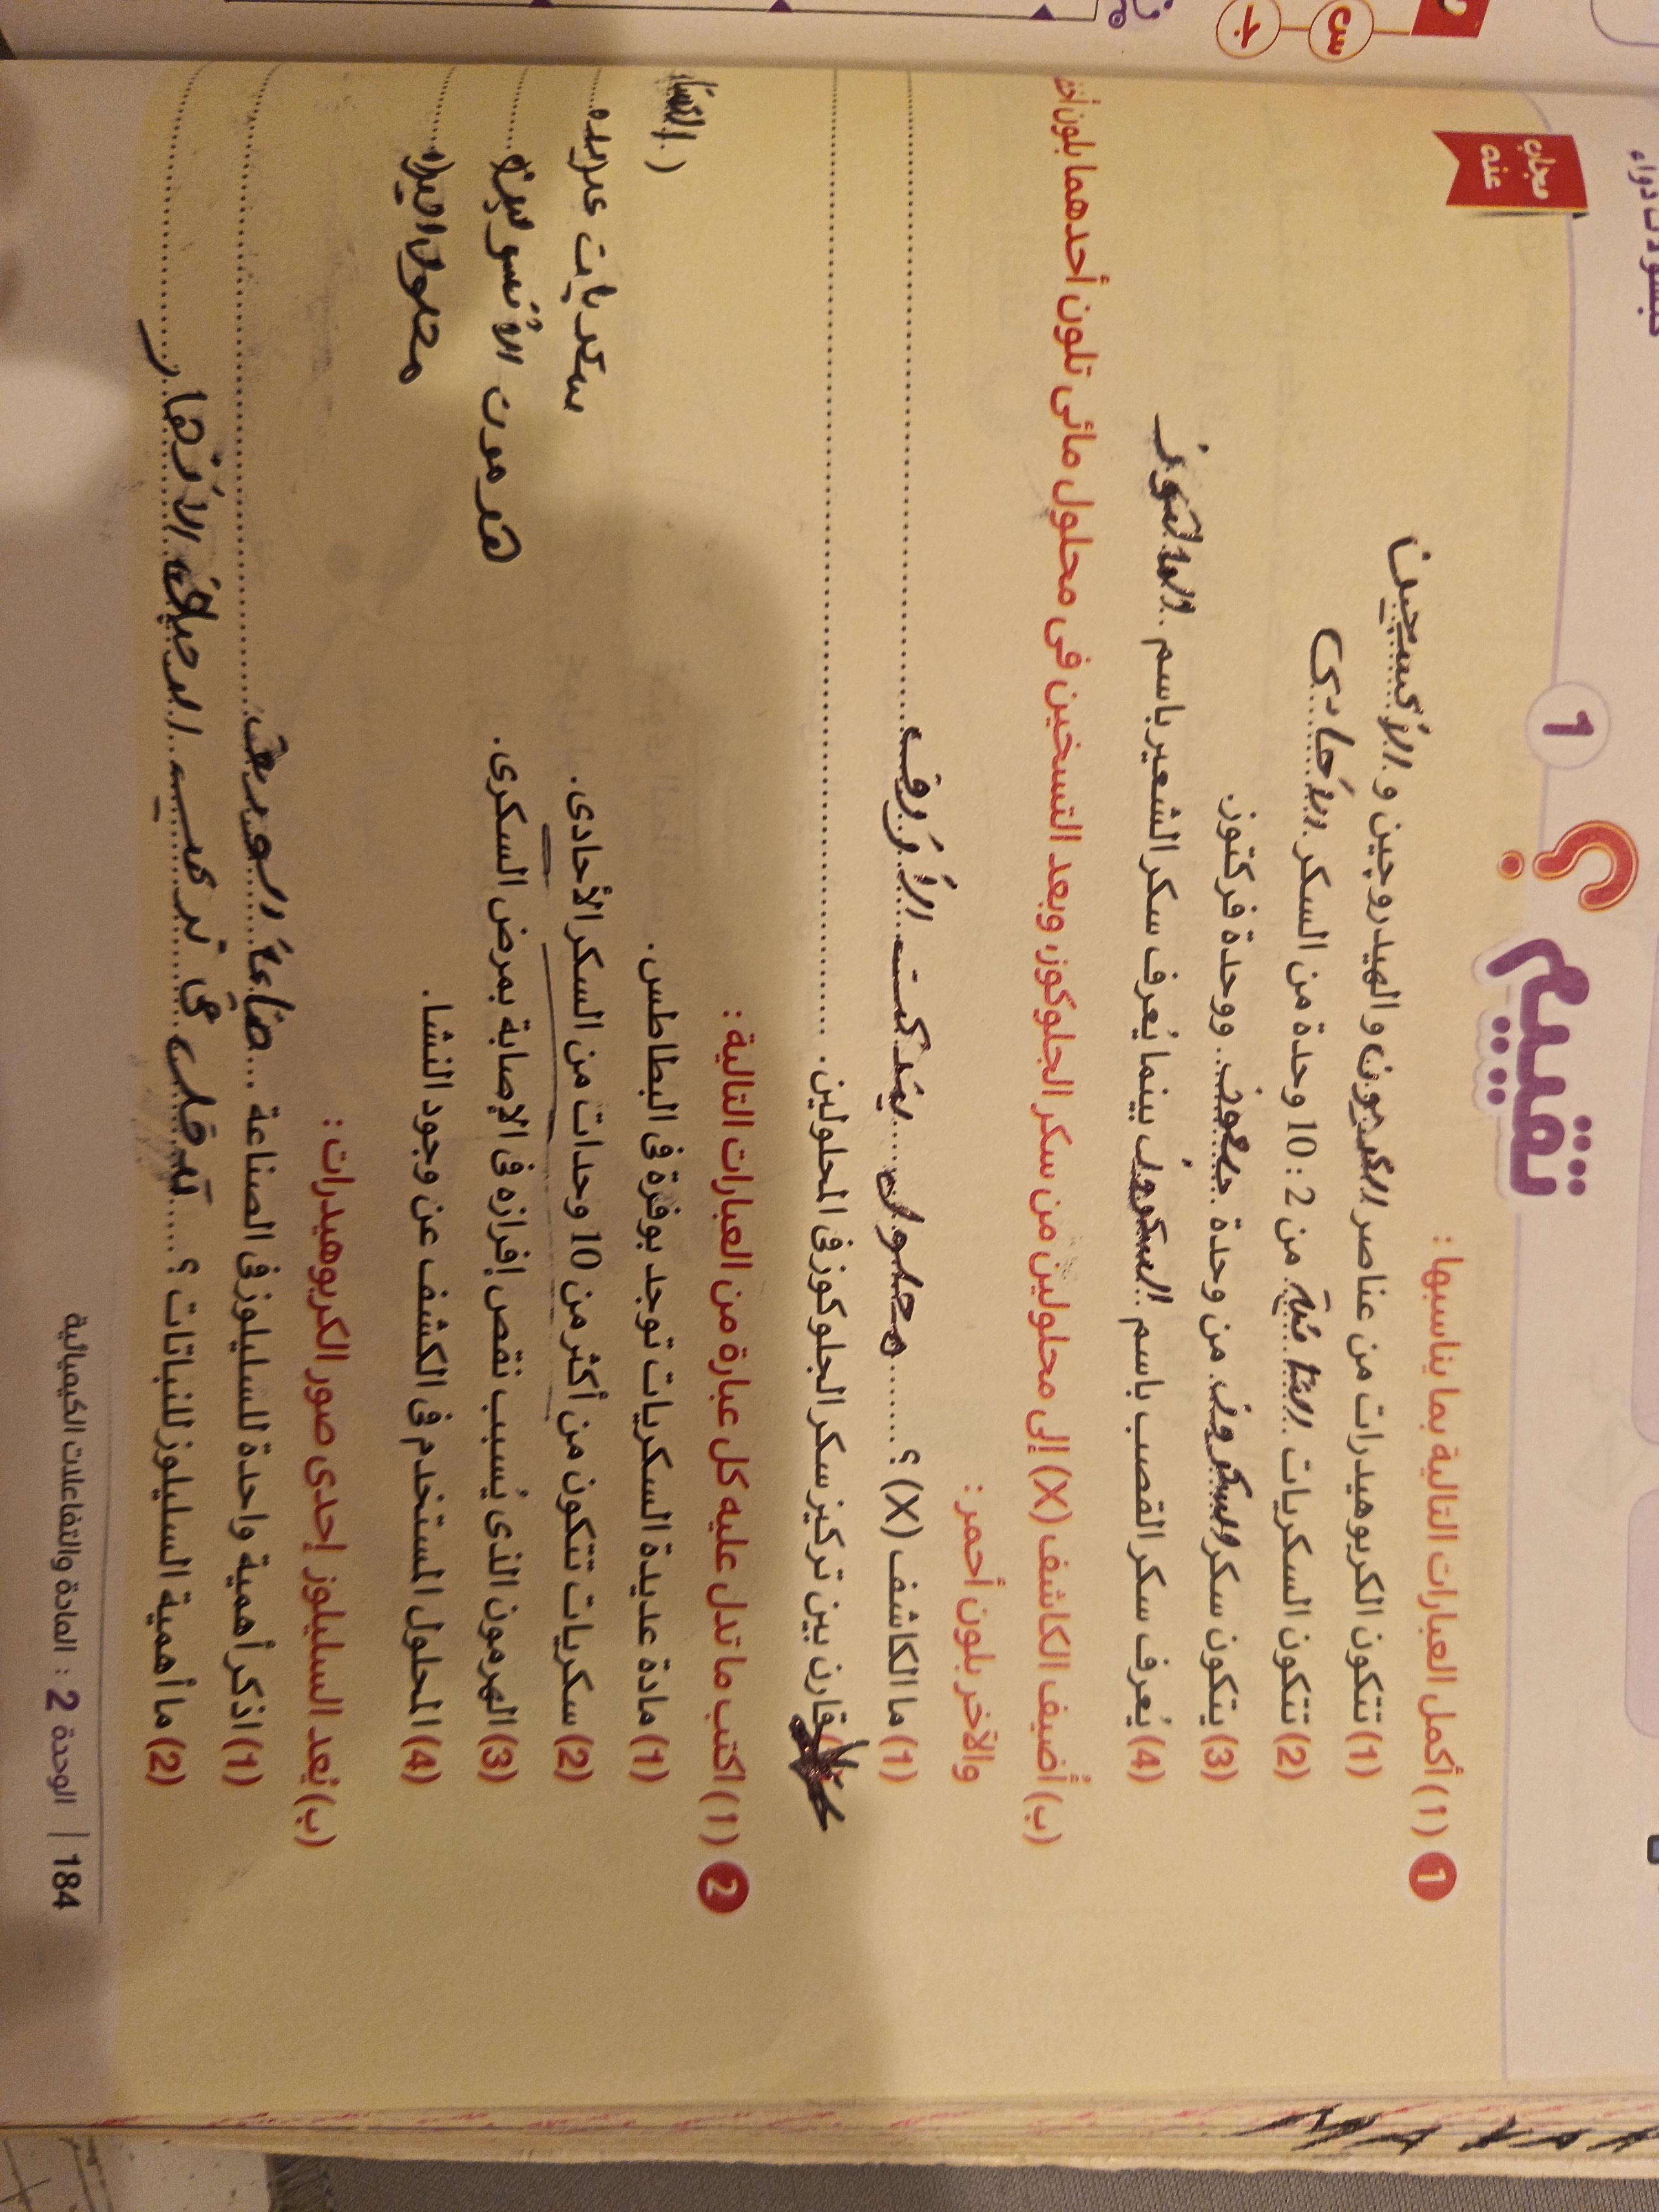 مجاب عنه
تقييم ؟ 1
1 (1) أكمل العبارات التالية بما يناسبها :
(1) تتكون الكربوهيدرات من عناصر الكربون والهيدروجين و الأكسجين
(2) تتكون السكريات الثنائية من 2 : 10 وحدة من السكر الأحادى
(3) يتكون سكر السكروز من وحدة جلوكوز ووحدة فركتوز.
(4) يُعرف سكر القصب باسم السكروز بينما يُعرف سكر الشعير باسم المالتوز
(ب) أُضيف الكاشف (X) إلى محلولين من سكر الجلوكوز، وبعد التسخين فى محلول مائى تلون أحدهما بلون
والآخر بلون أحمر :
(1) ما الكاشف (X) ؟ محلول بندكت الأزرق
قارن بين تركيز سكر الجلوكوز فى المحلولين.
2 (1) اكتب ما تدل عليه كل عبارة من العبارات التالية :
(1) مادة عديدة السكريات توجد بوفرة فى البطاطس. (
(2) سكريات تتكون من أكثر من 10 وحدات من السكر الأحادى. سكريات عديده
(3) الهرمون الذى يُسبب نقص إفرازه فى الإصابة بمرض السكرى. هرمون الأنسولين
(4) المحلول المستخدم فى الكشف عن وجود النشا. محلول اليود
(ب) يُعد السليلوز إحدى صور الكربوهيدرات :
(1) اذكر أهمية واحدة للسليلوز فى الصناعة صناعة الورق
(2) ما أهمية السليلوز للنباتات ؟ يدخل فى تركيب
184 | الوحدة 2 : المادة والتفاعلات الكيميائية